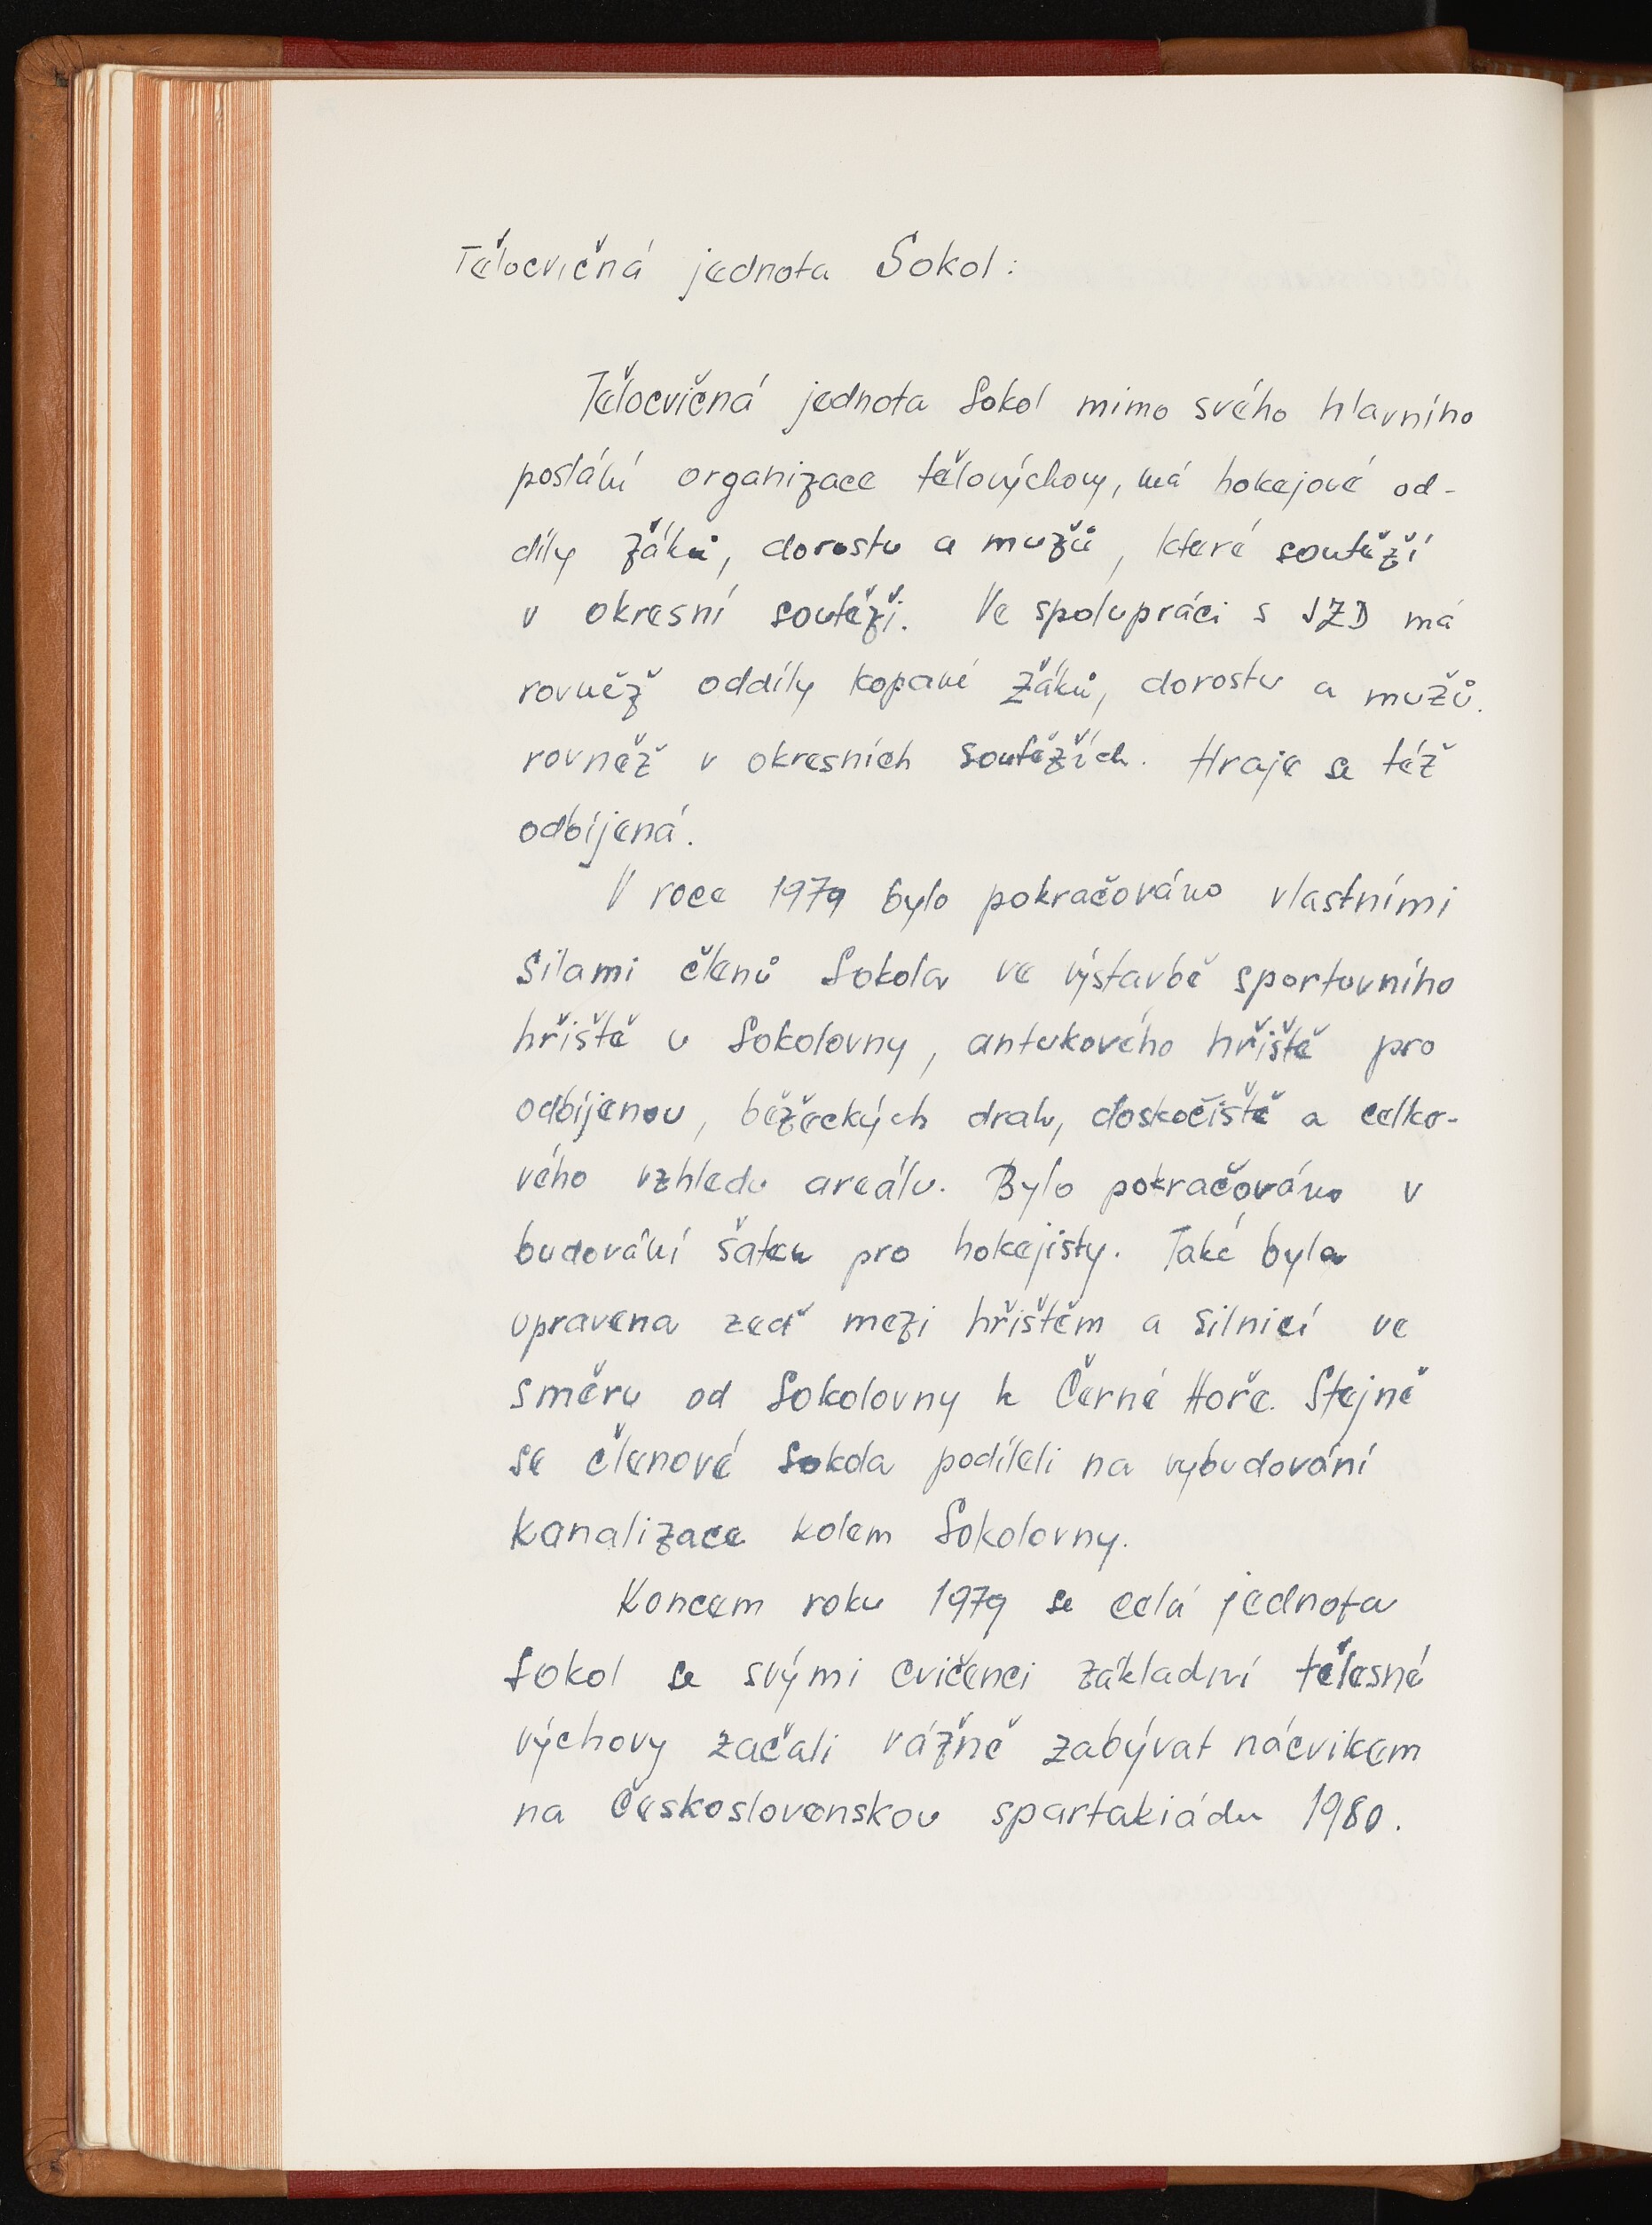 Tělocvičná jednota Sokol:
Tělocvičná jednota Sokol mimo svého hlavního
poslání organizace tělovýchovy, má hokejové od-
díly žáků, dorostu a mužů, které soutěží
v okresní soutěži. Ve spolupráci s JZD má
rovněž oddíly kopané žáků, dorostu a mužů.
rovněž v okresních soutěžích. Hraje se též
odbíjená.
V roce 1979 bylo pokračováno vlastními
silami členů Sokola ve výstavbě sportovního
hřiště u Sokolovny, antukového hřiště pro
odbíjenou, běžeckých drah, doskočiště a celko-
vého vzhledu areálu. Bylo pokračováno v
budování šaten pro hokejisty. Také byla
opravena zeď mezi hřištěm a silnicí ve
směru od Sokolovny k Černé Hoře. Stejně
se členové Sokola podíleli na vybudování
kanalizace kolem Sokolovny.
Koncem roku 1979 se celá jednota
Sokol se svými cvičenci základní tělesné
výchovy začali vážně zabývat nácvikem
na Československou spartakiádu 1980.